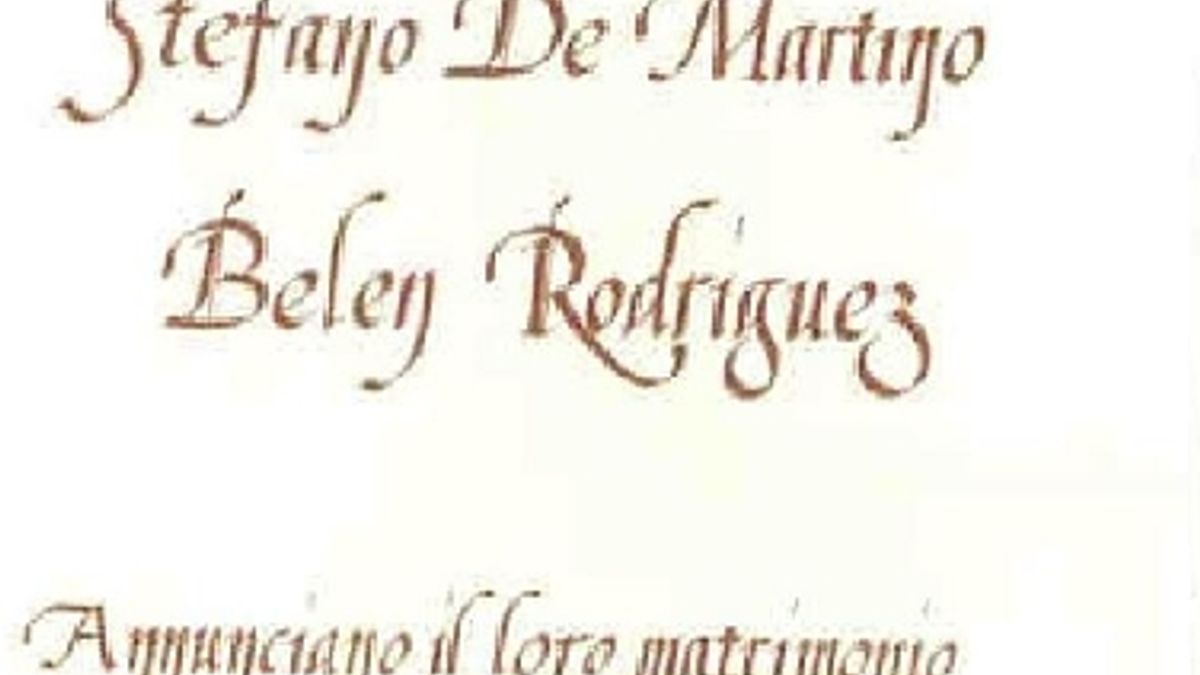 Stefano De Martino
Belen Rodriguez
Annunciano il loro matrimonio